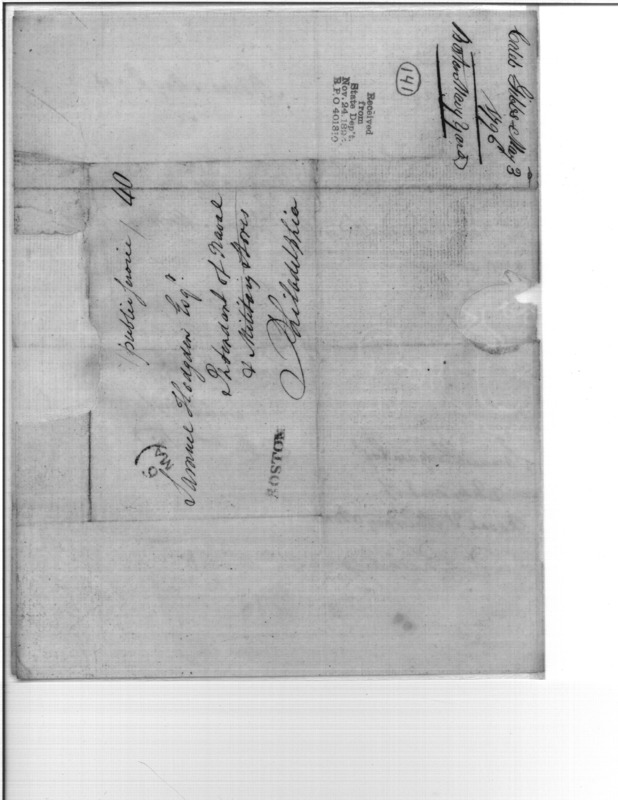 Caleb Gibbs May 3
1796
Boston Navy Yard
141
Received
from
State Dep't.
Nov. 24. 189
R.P.O 401810
public service / 40
Samuel Hodgdon Esqr
Intendant of Naval
& Military Stores
Philadelphia
BOSTON